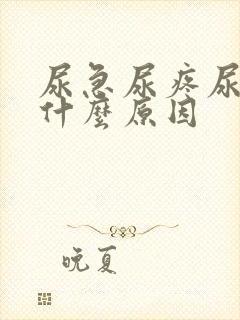 尿急尿疼尿
什麼原因
晚夏